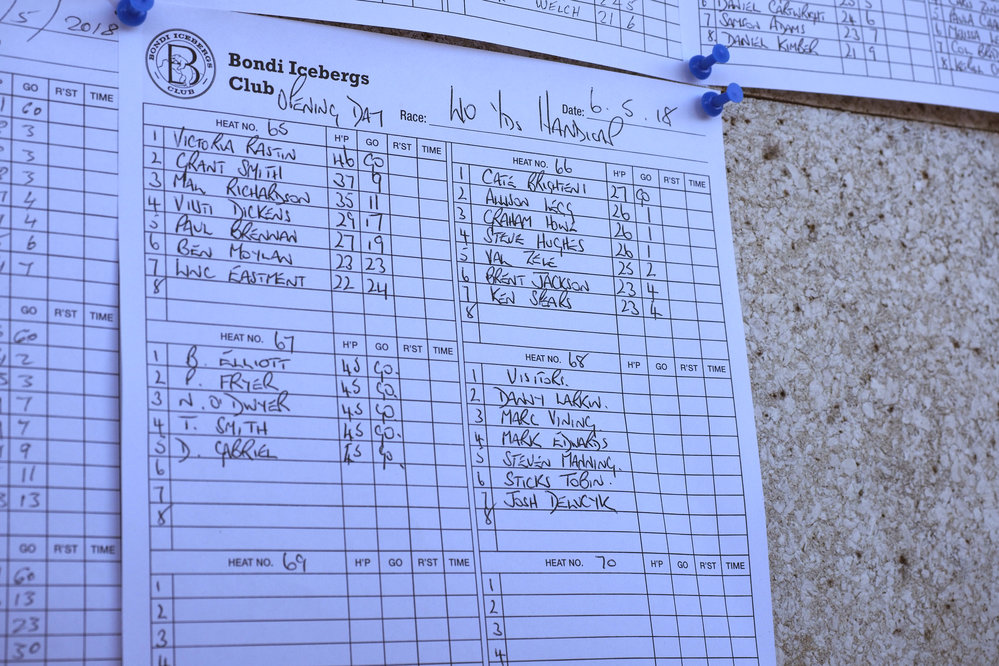 5/2018
WELCH 21 6
6 DANIEL CARTWRIGHT 24 6
7 SAMSON ADAMS 23 7
8 DANIEL KIMBER 21 9
BONDI ICEBERGS CLUB
B
Bondi Icebergs
Club
OPENING DAY Race: 40 Yds HANDICAP Date: 6.5.18
HEAT NO. 65 H'P GO R'ST TIME
1 VICTORIA RASTIN 46 GO
2 GRANT SMITH 37 9
3 MAL RICHARDSON 35 11
4 VINTI DICKENS 29 17
5 PAUL BRENNAN 27 19
6 BEN MOYLAN 23 23
7 EASTMENT 22 24
8
HEAT NO. 66 H'P GO R'ST TIME
1 CATE BRIGHTENI 27 GO
2 ALLISON LEGG 26 1
3 GRAHAM HOWE 26 1
4 STEVE HUGHES 26 1
5 VAL 25 2
6 BRENT JACKSON 23 4
7 KEN SPEARS 23 4
8
HEAT NO. 67 H'P GO R'ST TIME
1 B. ELLIOTT 45 GO.
2 P. FRYER 45 GO.
3 N. O'DWYER 45 GO.
4 T. SMITH 45 GO.
5 D. GABRIEL 45 GO.
6
7
8
HEAT NO. 68 H'P GO R'ST TIME
1 VISITORS.
2 DANNY LARKIN.
3 MARC VINING.
4 MARK EDWARDS
5 STEVEN MANNING.
6 STICKS TOBIN.
7 JOSH DEWCYK
8
HEAT NO. 69 H'P GO R'ST TIME
1
2
3
HEAT NO. 70 H'P GO R'ST TIME
1
2
3
4
GO R'ST TIME
GO
3
3
3
4
4
6
7
GO R'ST TIME
GO
2
3
7
7
9
11
13
GO R'ST TIME
GO
13
23
30